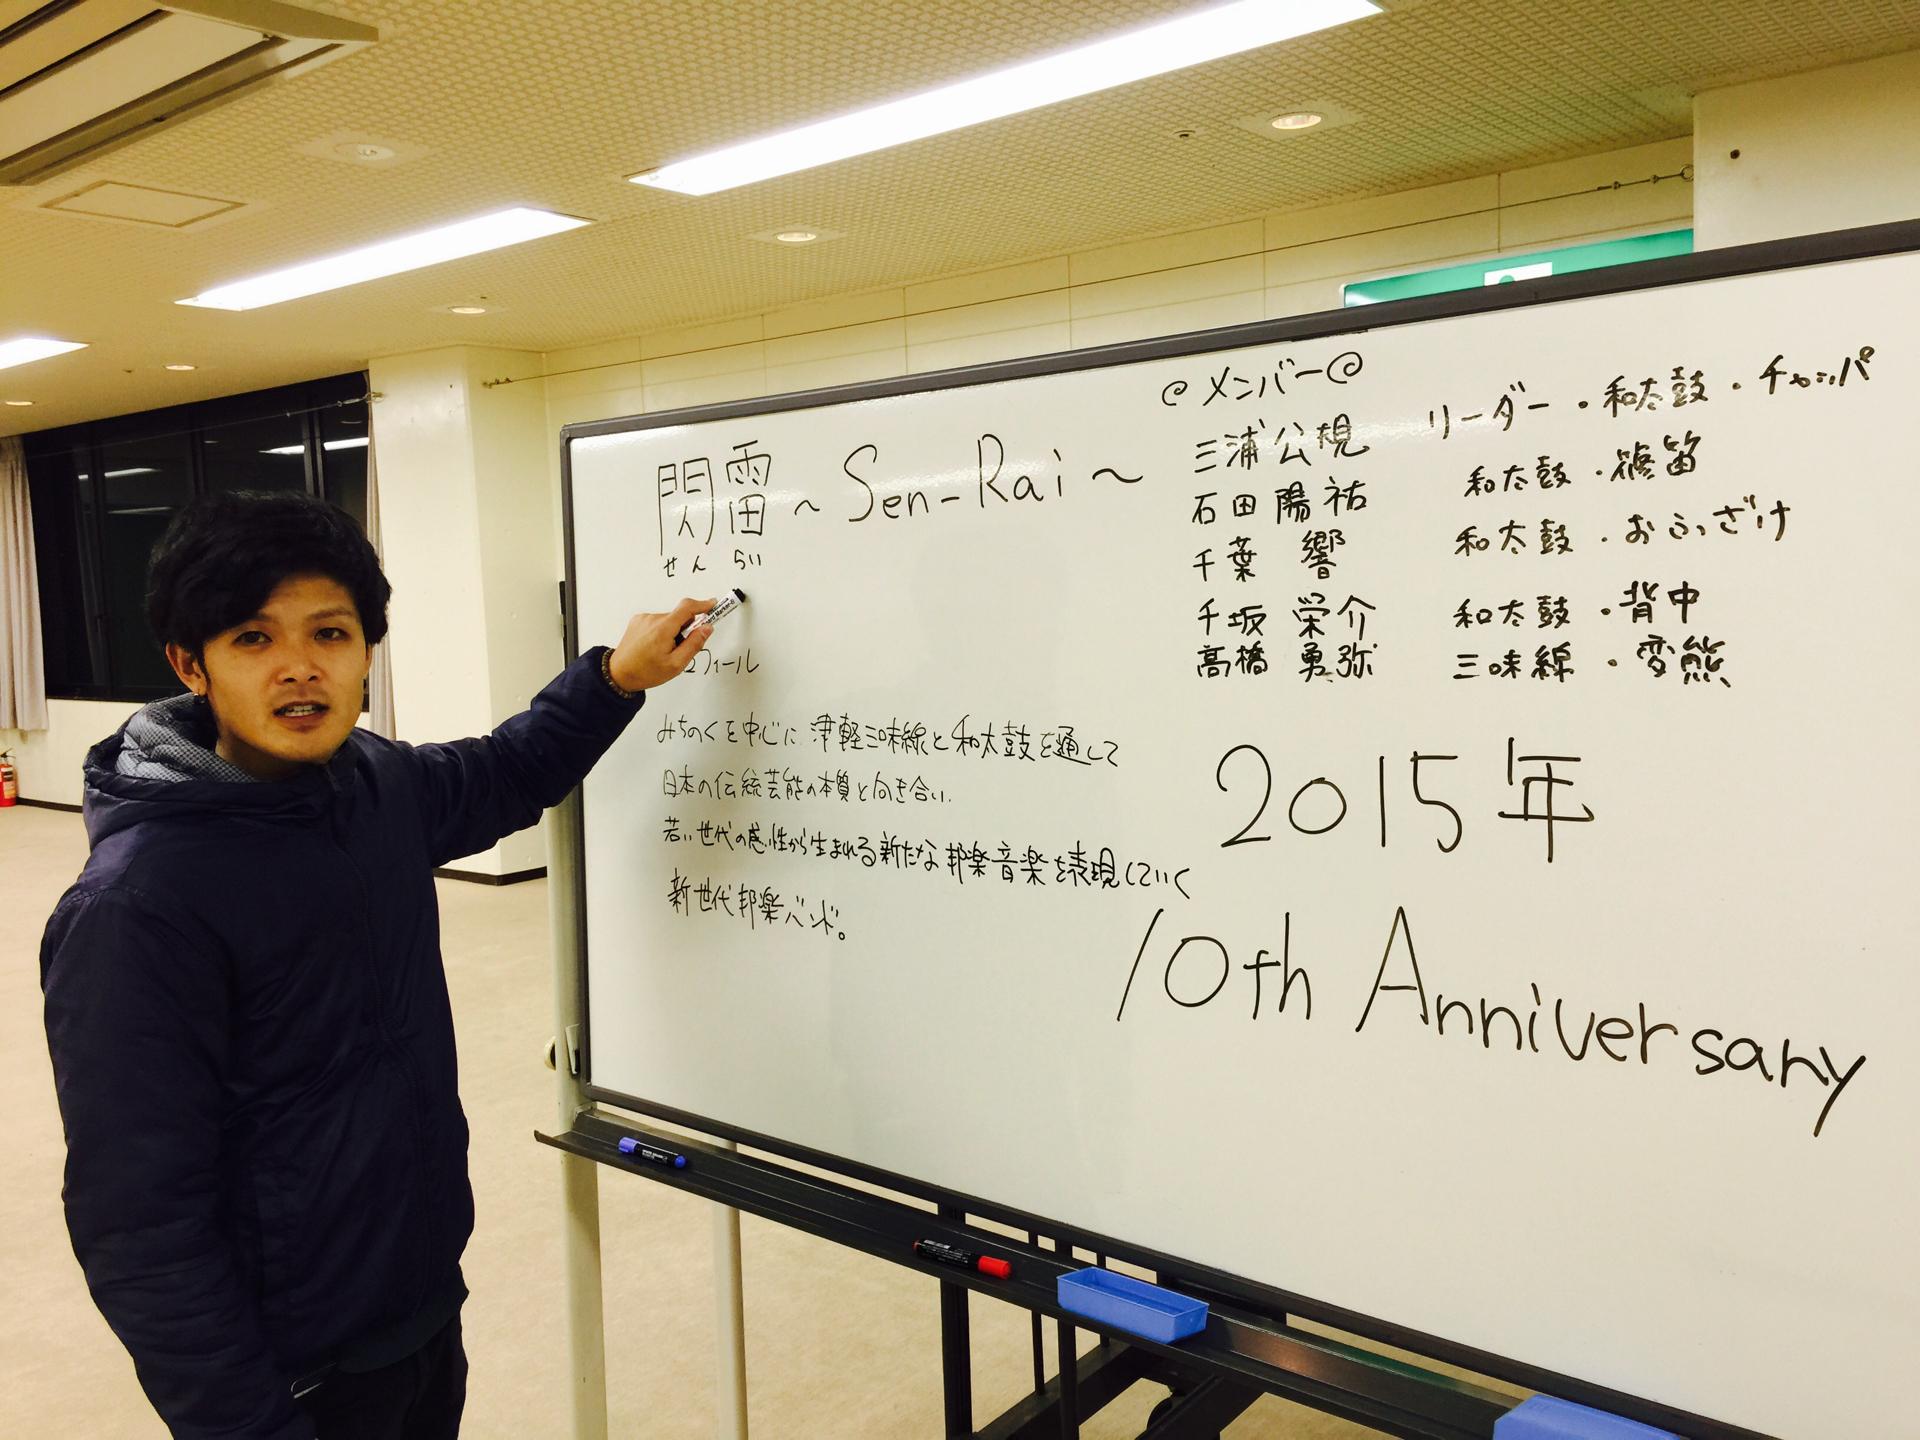 閃雷 ~ Sen-Rai ~
せん らい
フィール
みちのくを中心に、津軽三味線と和太鼓を通して
日本の伝統芸能の本質と向き合い、
若い世代の感性から生まれる新たな邦楽音楽を表現していく
新世代邦楽バンド。
@メンバー@
三浦公規 リーダー・和太鼓・チャッパ
石田陽祐 和太鼓・篠笛
千葉 響 和太鼓・おふざけ
千坂 栄介 和太鼓・背中
高橋 勇弥 三味線・変熊
2015年
10th Anniversary